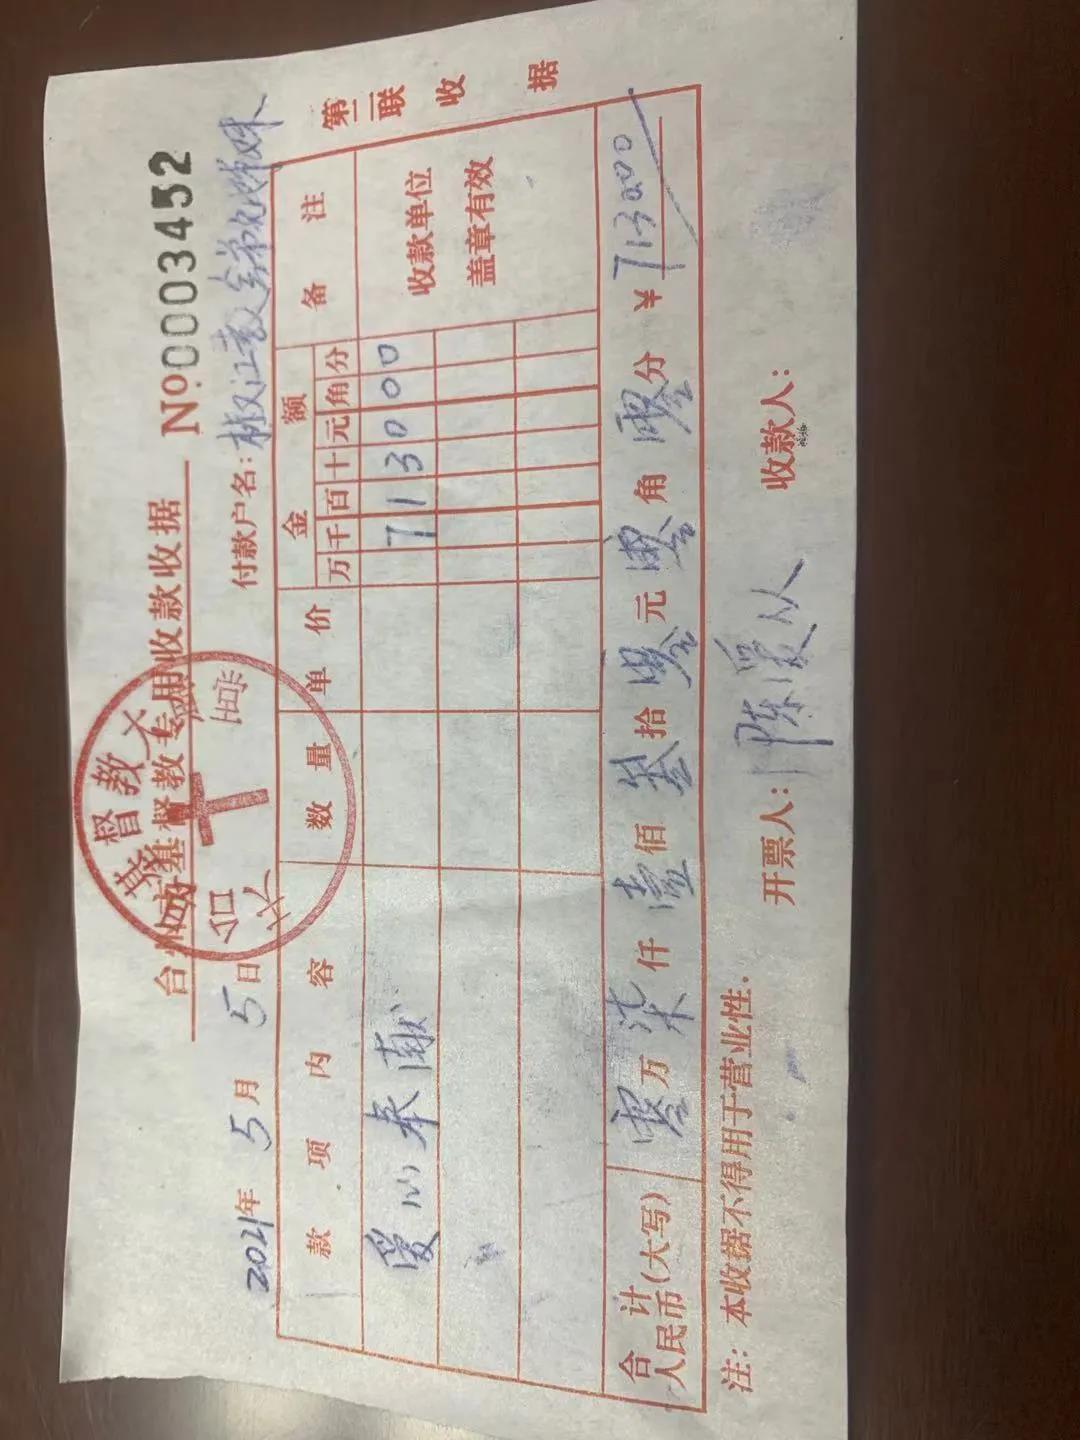 台州市基督教专用收款收据
№ 0003452
2021年 5月 5日
付款户名：椒江教会弟兄姊妹
款项内容 数量 单价 金额 备注
万 千 百 十 元 角 分
爱心奉献 7 1 3 0 0 0
收款单位
盖章有效
合计
人民币(大写) 零万柒仟壹佰叁拾零元零角零分 ¥7130.00
第二联 收据
开票人： 收款人：
注：本收据不得用于营业性.
基督教